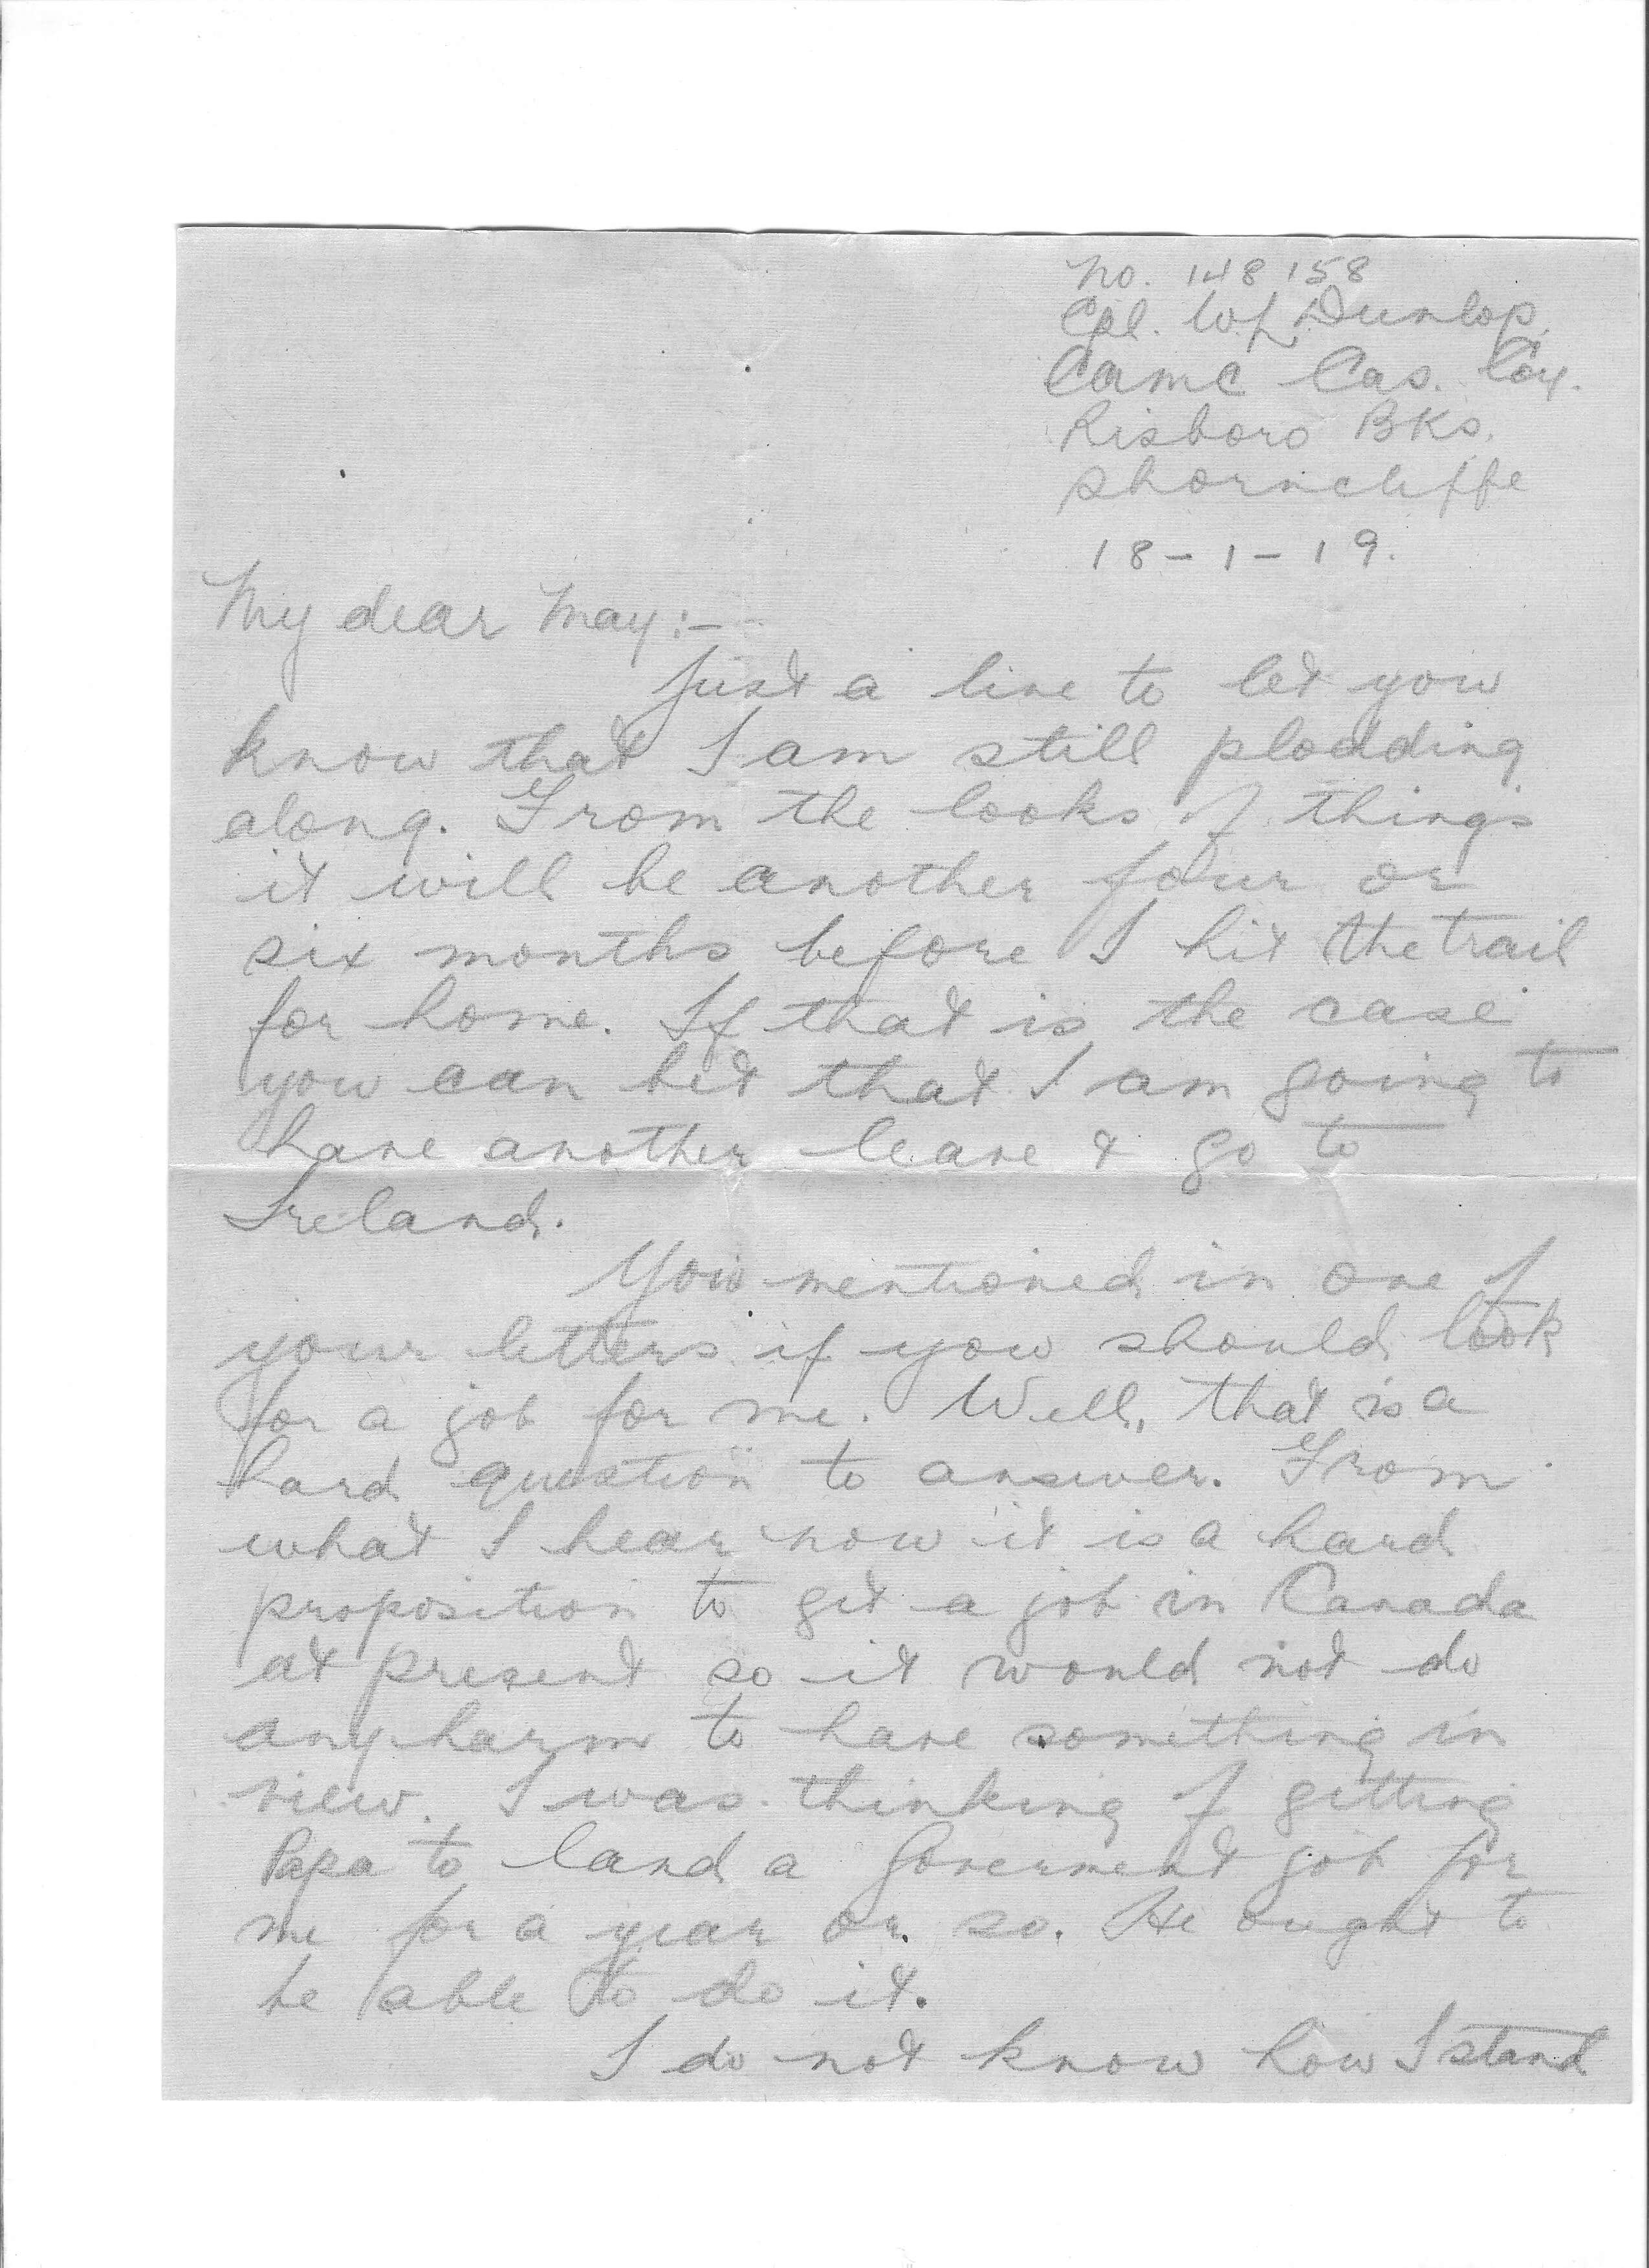 No. 148158
Cpl. W.L. Dunlop,
CAMC Cas. Coy.
Risboro Bks.
Shorncliffe
18-1-19.
My dear May:-
Just a line to let you
know that I am still plodding
along. From the looks of things
it will be another four or
six months before I hit the trail
for home. If that is the case
you can bet that I am going to
have another leave & go to
Ireland.
You mentioned in one of
your letters if you should look
for a job for me. Well, that is a
hard question to answer. From
what I hear now it is a hard
proposition to get a job in Canada
at present so it would not do
any harm to have something in
view. I was thinking of getting
Papa to land a Goverment job for
me for a year or so. He ought to
be able to do it.
I do not know how I stand